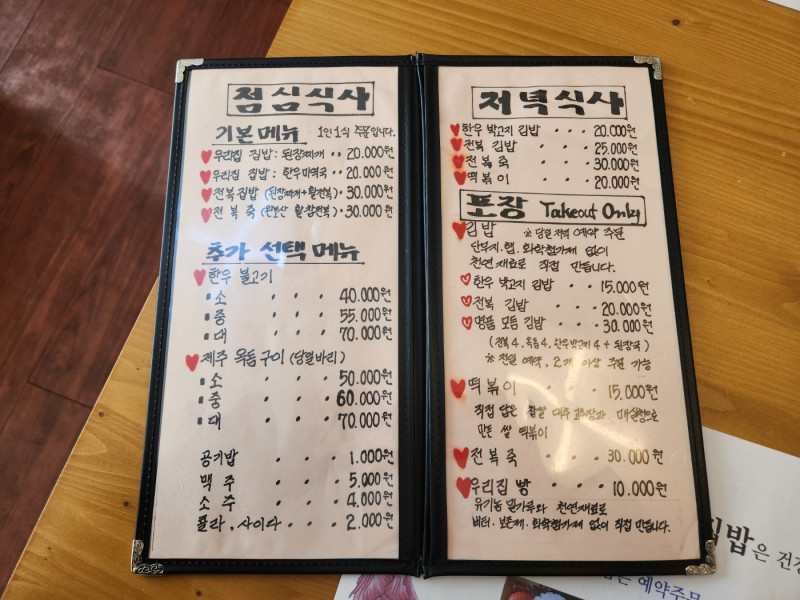 점심식사
기본메뉴 1인1식 주문입니다.
우리집 집밥: 된장찌개 ·· 20.000원
우리집 집밥: 한우미역국 ·· 20.000원
전복집밥 (된장찌개+활전복)· 30.000원
전복죽 (완도산 활참전복)· 30.000원
추가 선택 메뉴
한우 불고기
소 · · · 40.000원
중 · · · 55.000원
대 · · · 70.000원
제주 옥돔구이 (당일바리)
소 · · · 50.000원
중 · · · 60.000원
대 · · · 70.000원
공기밥 · · · 1.000원
맥주 · · · 5.000원
소주 · · · 4.000원
콜라, 사이다 · · · 2.000원
저녁식사
한우 박고지 김밥 · · · 20.000원
전복 김밥 · · · 25.000원
전복죽 · · · 30.000원
떡볶이 · · · 20.000원
포장 Takeout Only
김밥 ※ 당일 예약 주문
단무지.햄. 화학첨가제 없이
천연재료로 직접 만듭니다.
한우 박고지 김밥 · · 15.000원
전복 김밥 · · · 20.000원
명품 모듬 김밥 · · 30.000원
(전복4, 옥돔4, 한우박고지4 + 된장국)
※ 전일 예약, 2개 이상 주문 가능
떡볶이 · · · 15.000원
직접 담은 찹쌀 고추장과
만든 쌀 떡볶이
전복죽 · · · 30.000원
우리집 빵 · · · 10.000원
유기농 밀가루와 천연재료로
버터. 보존제. 화학첨가제 없이 직접 만듭니다.
집밥은 건강
예약주문